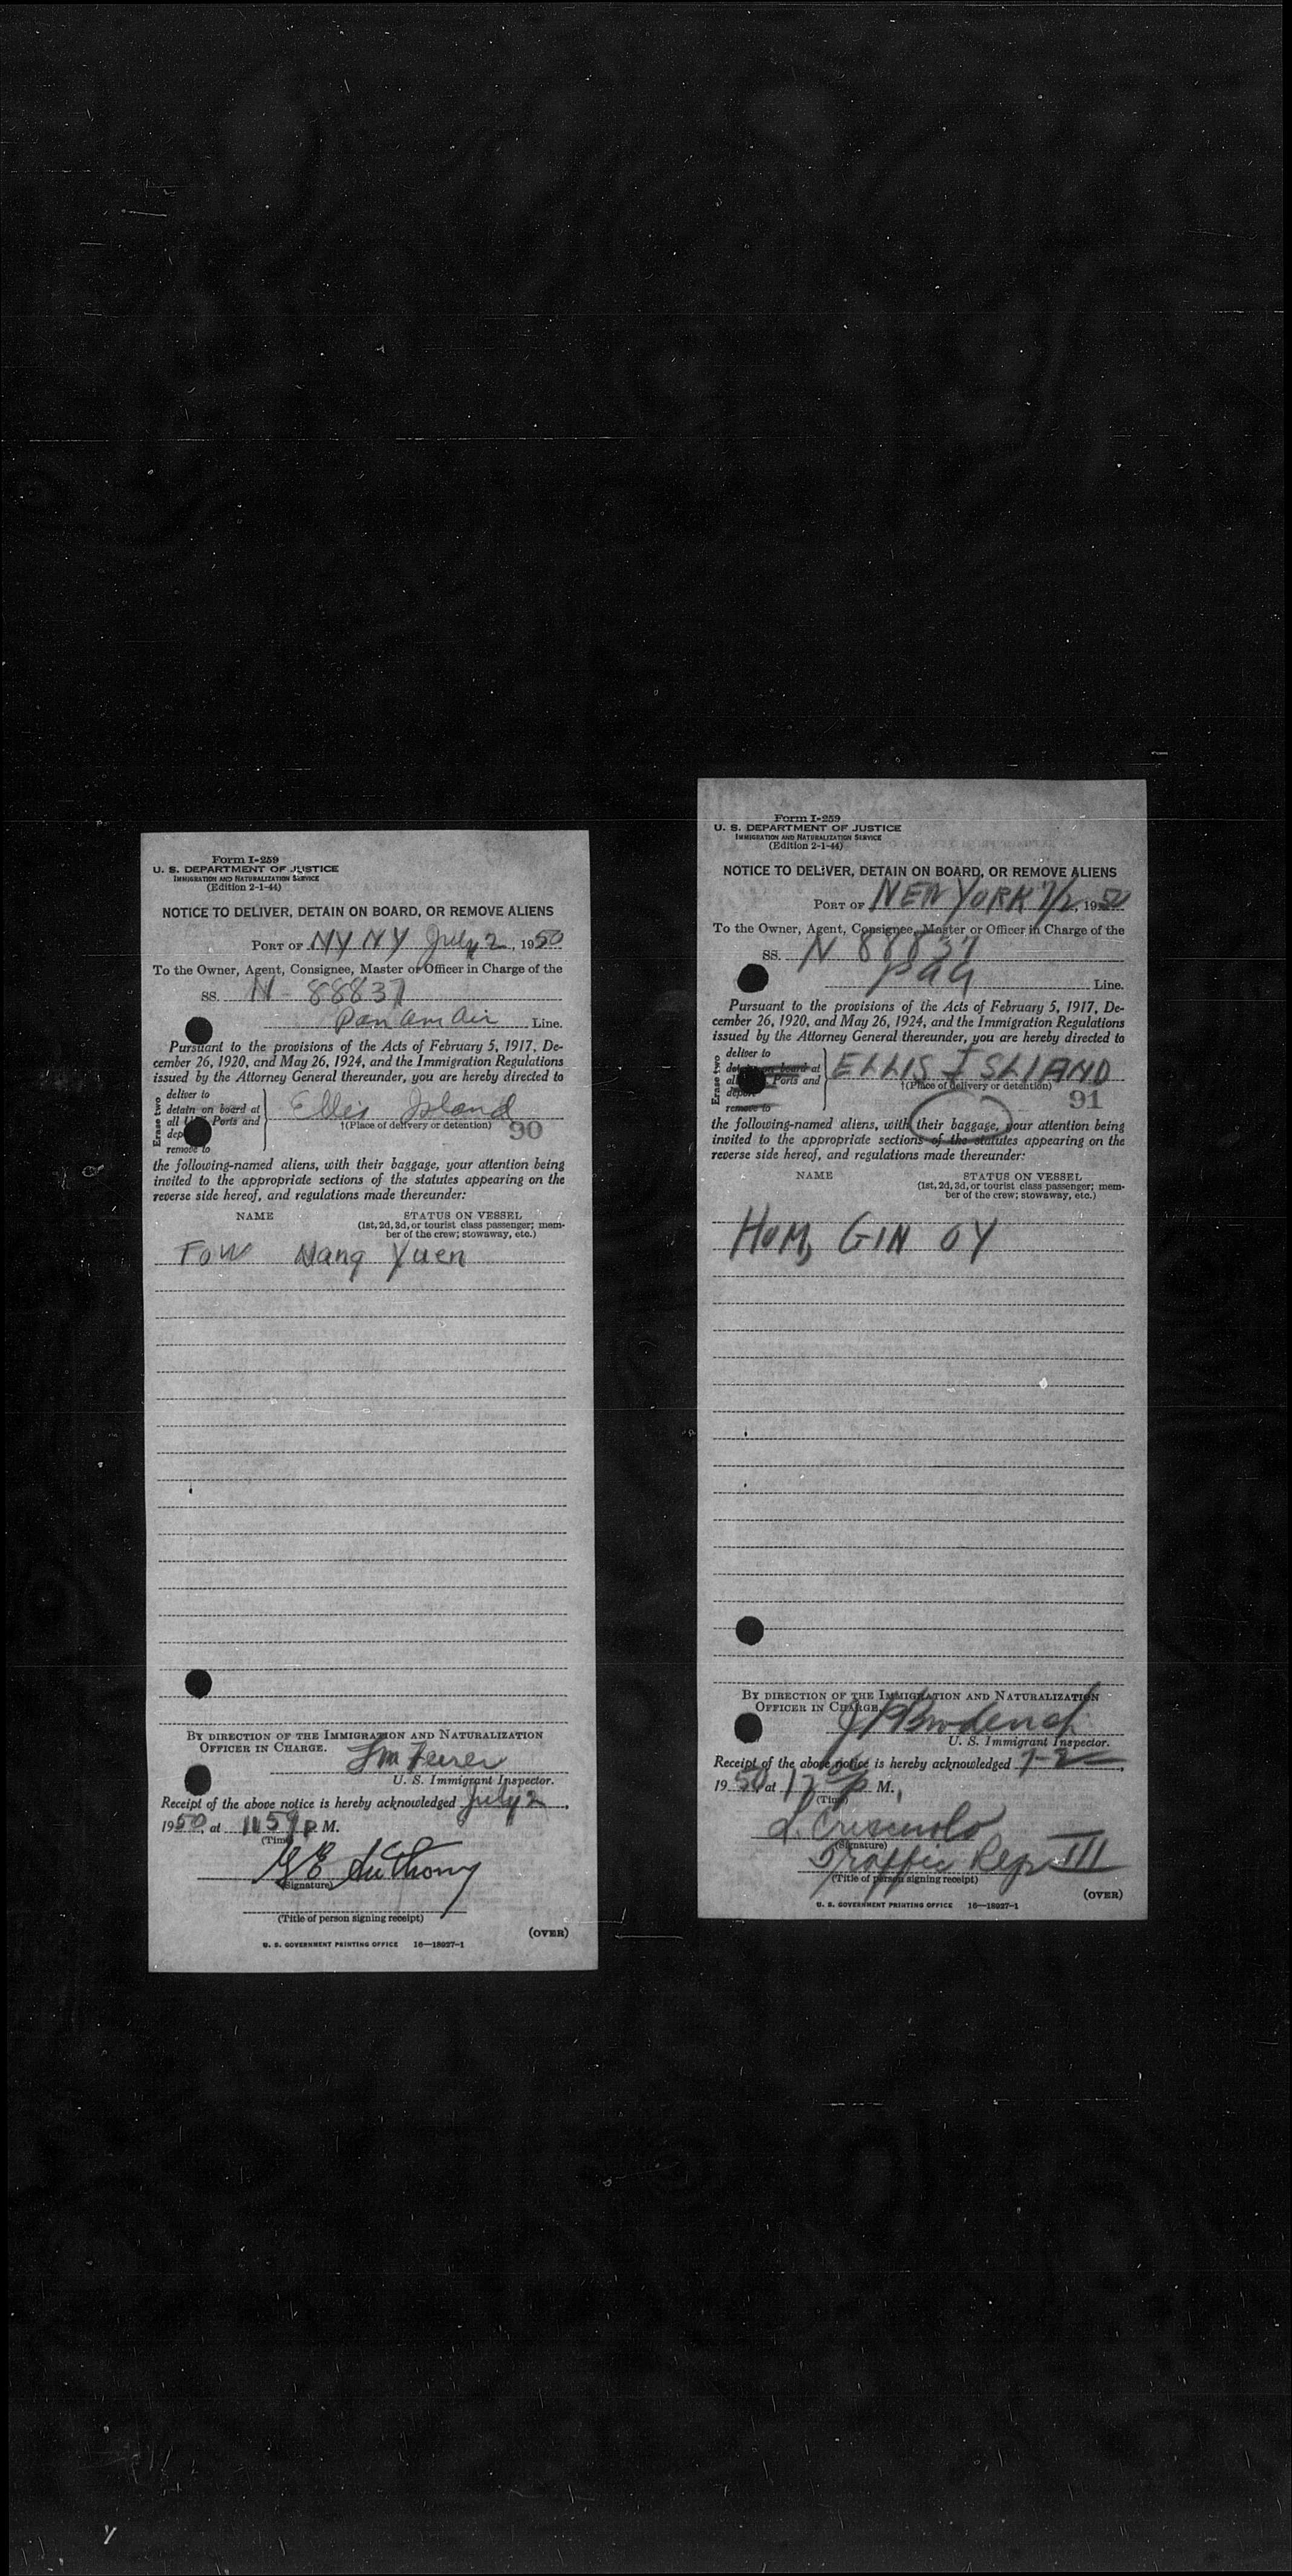 Form I-259
U. S. DEPARTMENT OF JUSTICE
IMMIGRATION AND NATURALIZATION SERVICE
(Edition 2-1-44)
NOTICE TO DELIVER, DETAIN ON BOARD, OR REMOVE ALIENS
PORT OF NY NY July 2, 1950
To the Owner, Agent, Consignee, Master or Officer in Charge of the
SS. N-88837
Pan Am Air Line.
Pursuant to the provisions of the Acts of February 5, 1917, De-
cember 26, 1920, and May 26, 1924, and the Immigration Regulations
issued by the Attorney General thereunder, you are hereby directed to
Erase two
deliver to
detain on board at
all Ports and
remove to
Ellis Island
†(Place of delivery or detention) 90
the following-named aliens, with their baggage, your attention being
invited to the appropriate sections of the statutes appearing on the
reverse side hereof, and regulations made thereunder:
NAME STATUS ON VESSEL
(1st, 2d, 3d, or tourist class passenger; mem-
ber of the crew; stowaway, etc.)
Fow Nang Yuen
BY DIRECTION OF THE IMMIGRATION AND NATURALIZATION
OFFICER IN CHARGE.
U. S. Immigrant Inspector.
Receipt of the above notice is hereby acknowledged July 2,
1950, at 1159 P M.
(Time)
G E Anthony
(Signature)
(Title of person signing receipt)
(OVER)
U. S. GOVERNMENT PRINTING OFFICE 16—18027-1
Form I-259
U. S. DEPARTMENT OF JUSTICE
IMMIGRATION AND NATURALIZATION SERVICE
(Edition 2-1-44)
NOTICE TO DELIVER, DETAIN ON BOARD, OR REMOVE ALIENS
PORT OF NEW YORK 7/2, 1950
To the Owner, Agent, Consignee, Master or Officer in Charge of the
SS. N 88837
PAA Line.
Pursuant to the provisions of the Acts of February 5, 1917, De-
cember 26, 1920, and May 26, 1924, and the Immigration Regulations
issued by the Attorney General thereunder, you are hereby directed to
Erase two
deliver to
detain on board at
all Ports and
deport
remove to
ELLIS ISLAND
†(Place of delivery or detention)
91
the following-named aliens, with their baggage, your attention being
invited to the appropriate sections of the statutes appearing on the
reverse side hereof, and regulations made thereunder:
NAME STATUS ON VESSEL
(1st, 2d, 3d, or tourist class passenger; mem-
ber of the crew; stowaway, etc.)
HOM, GIN OY
BY DIRECTION OF THE IMMIGRATION AND NATURALIZATION
OFFICER IN CHARGE.
U. S. Immigrant Inspector.
Receipt of the above notice is hereby acknowledged 7-2,
1950, at P M.
(Time)
(Signature)
Traffic Rep III
(Title of person signing receipt)
(OVER)
U. S. GOVERNMENT PRINTING OFFICE 16—18027-1